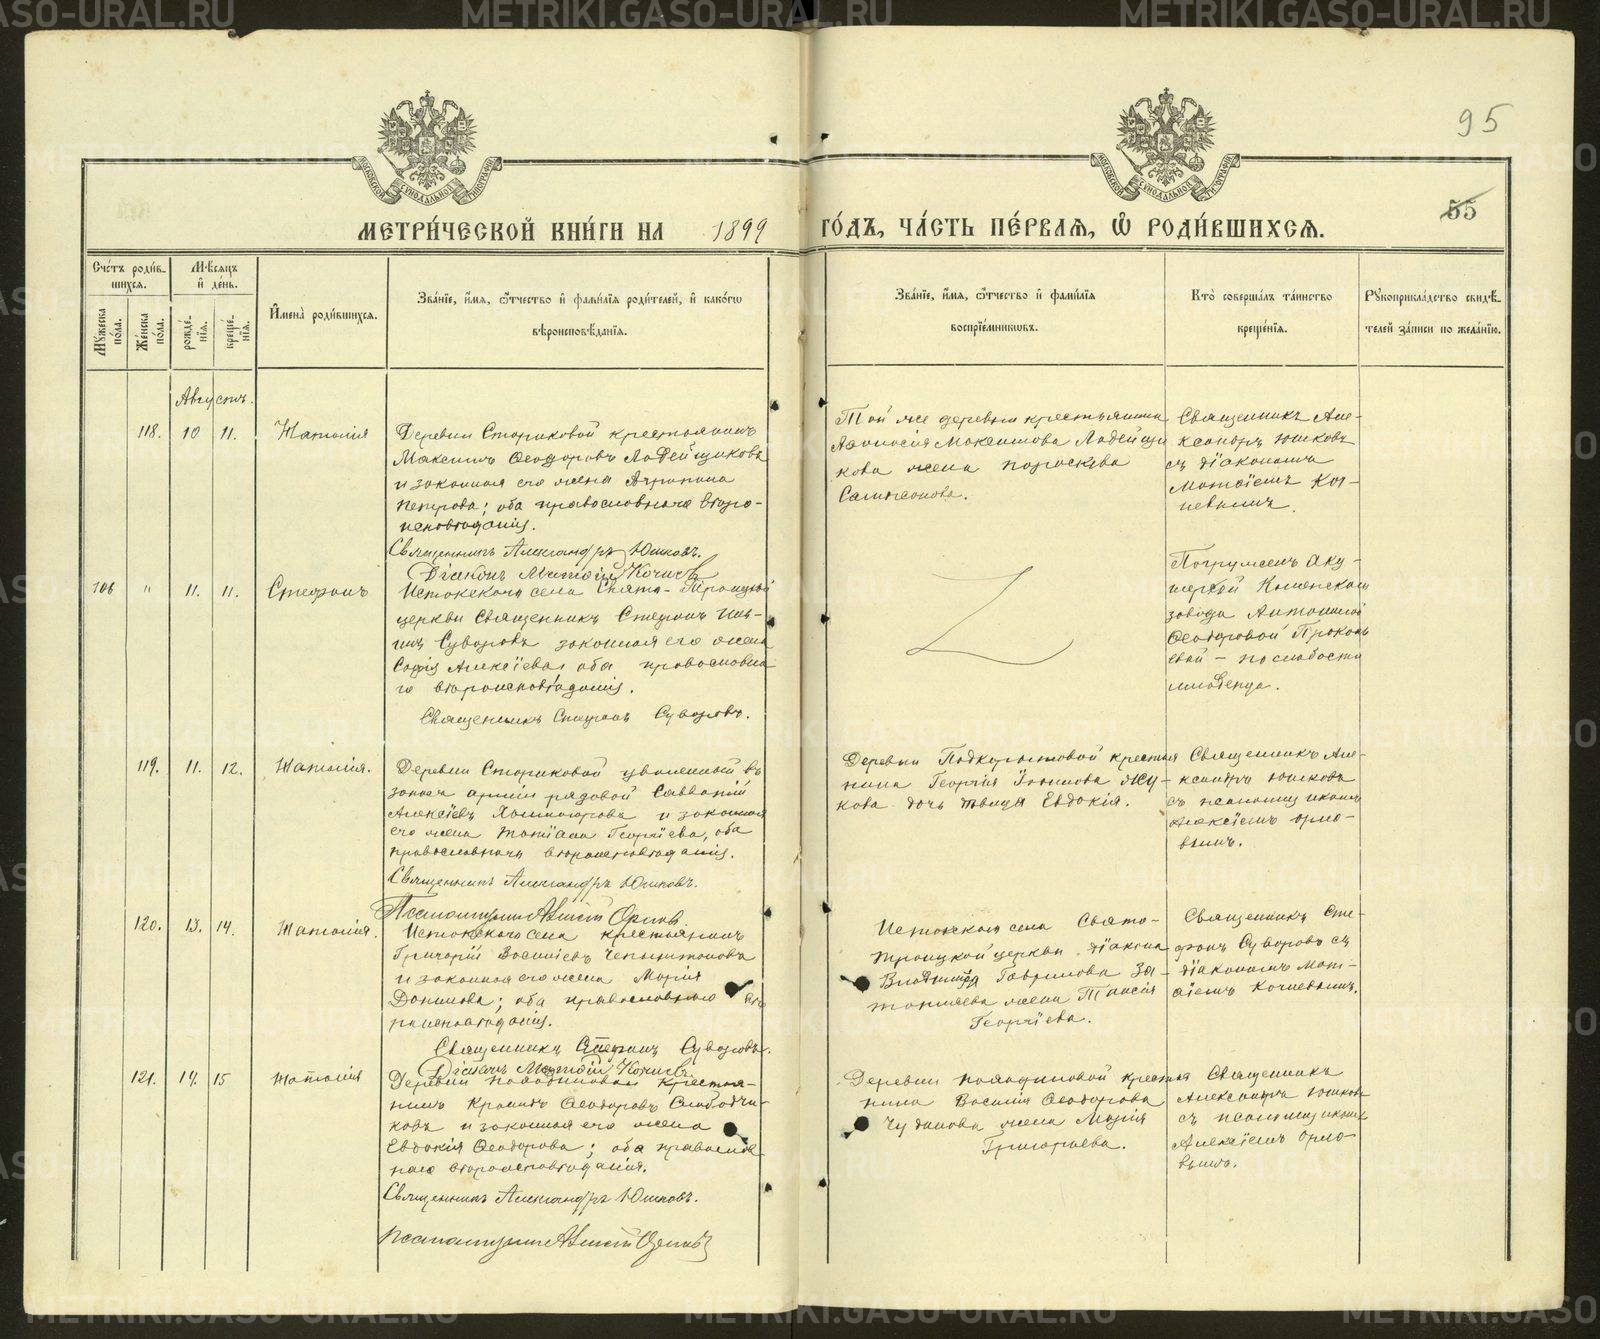 METRIKI.GASO-URAL.RU
95
55
МЕТРИ́ЧЕСКОЙ КНИ́ГИ НА 1899 ГО́ДЪ, ЧА́СТЬ ПЕ́РВАѦ, Ѽ РОДИ́ВШИХСѦ.
Сче́тъ роди́в-
шихсѧ.
Мꙋ́жеска по́ла.
Же́нска по́ла.
Мѣ́сѧцъ и҆ де́нь.
рожде́-
нїѧ.
креще́-
нїѧ.
И҆мена̀ роди́вшихсѧ.
Зва́нїе, и҆́мѧ, ѻ҆́тчество и҆ фами́лїе роди́телей, и҆ како́гѡ
вѣроисповѣ́данїѧ.
Зва́нїе, и҆́мѧ, ѻ҆́тчество и҆ фами́лїѧ
воспрїе́мникѡвъ.
Кто̀ соверша́лъ та́инство
креще́нїѧ.
Рꙋкоприкла́дство свидѣ́-
телей за́писи по жела́нїю.
Августъ.
118. 10 11. Наталія
Деревни Стариковой крестьянинъ
Максимъ Ѳеодоровъ Ладейщиковъ
и законная его жена
Петрова; оба православнаго вѣро-
исповѣданія.
Священникъ Александръ Юшковъ.
Діаконъ Матѳій Кочневъ
Той же деревни крестьянина
Аѳанасія Максимова Ладейщи
кова жена Параскева
Сампсонова.
Священникъ Але-
ксандръ Юшковъ
съ діакономъ
Матѳіемъ Коч-
невымъ.
106 " 11. 11. Стефанъ
Истокскаго села Свято-Троицкой
церкви Священникъ Стефанъ
Суворовъ законная его жена
Софія Алексіева оба православна
го вѣроисповѣданія.
Священникъ Стефанъ Суворовъ.
Погруженъ аку-
шеркой Каменскаго
завода Антониной
Ѳеодоровой Прокопь
евой - по слабости
младенца.
119. 11. 12. Наталія.
Деревни Стариковой уволенный въ
запасъ арміи рядовой Савватій
Алексіевъ и законная
его жена Татіана Георгіева, оба
православнаго вѣроисповѣданія.
Священникъ Александръ Юшковъ.
Псаломщикъ Алексій Орловъ
Деревни крестья
нина Георгія Жу-
кова дочь дѣвица Евдокія.
Священникъ Але-
ксандръ Юшковъ
съ псаломщикомъ
Алексіемъ Орло-
вымъ.
120. 13. 14. Наталія.
Истокскаго села крестьянинъ
Григорій Василіевъ
и законная его жена Марія
Данилова; оба православнаго вѣ
роисповѣданія.
Священникъ Стефанъ Суворовъ.
Діаконъ Матѳій Кочневъ
Истокскаго села Свято-
Троицкой церкви діакона
Владиміра Гаврилова
жена Таисія
Георгіева.
Священникъ Сте-
фанъ Суворовъ съ
діакономъ Мат-
ѳіемъ Кочневымъ.
121. 14. 15 Наталія
Деревни крестья-
нинъ Ѳеодоровъ Слободчи-
ковъ и законная его жена
Евдокія Ѳеодорова; оба православ
наго вѣроисповѣданія.
Священникъ Александръ Юшковъ.
Псаломщикъ Алексій Орловъ
Деревни крестья
нина Василія Ѳеодорова
Чуданова жена Марія
Григорьева.
Священникъ
Александръ Юшков
съ псаломщикомъ
Алексіемъ Орло
вымъ.